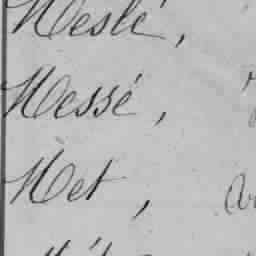 Meslé,
Messé,
Met,